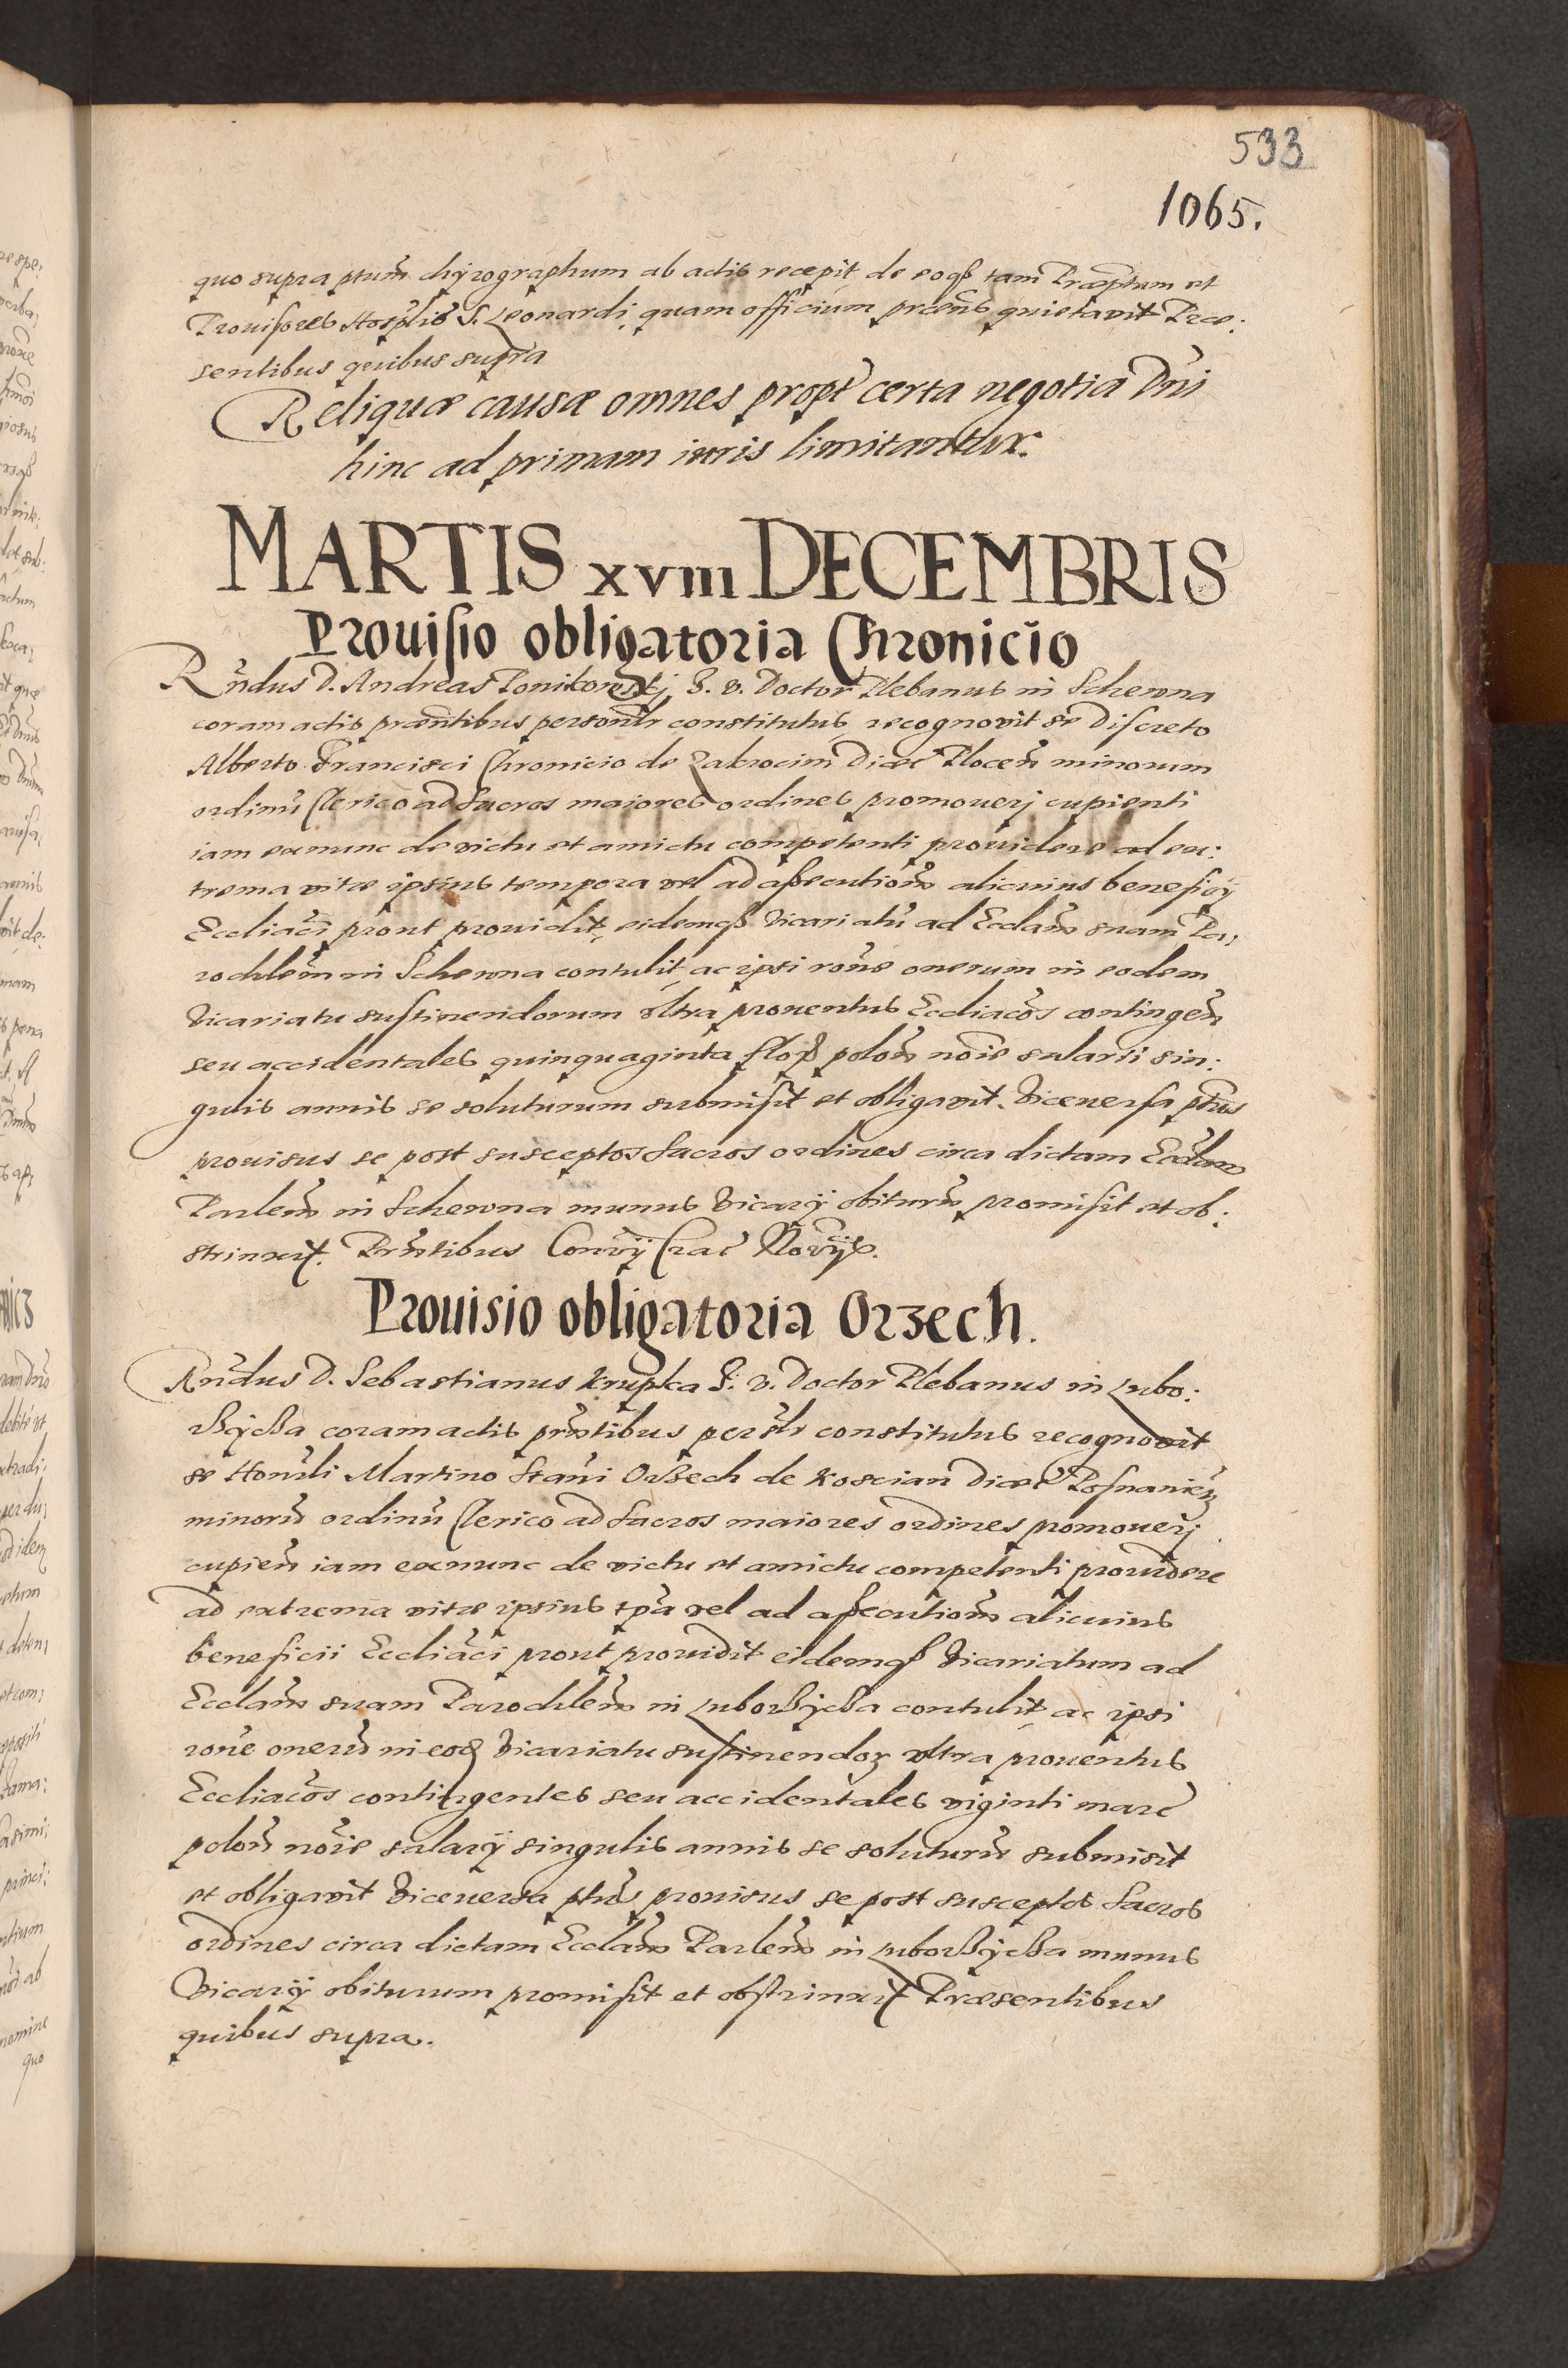 533
1065.
quo supra ptum chÿrographum ab actis recepit de eoq3 tam Præptum et
Prouisores Hosplis S. Leonardi, quam officium præns quietavit Præ:
sentibus quibus supra
Reliquæ causæ omnes propt certa negotia Dni
hinc ad primam iuris limitantur.
MARTIS xviii DECEMBRIS
Prouisio obligatoria Chronicio
Rndus D. Andreas Ponikowskj J. V. Doctor Plebanus in Schewna
coram actis præntibus personlr constitutus, recognovit se Discreto
Alberto Francisci Chronicio de Zakrocim Diæc Plocen minorum
ordinu Clerico ad Sacros maiores ordines promouerj cupienti
iam exnunc de victu et amictu competenti prouidere ad ex:
trema vitæ ipsius tempora vel ad assecutionem alicuius beneficÿ
Eccliaci prout prouidit, eidemq3 Vicariatu ad Ecclam suam Pa:
rochlem in Schewna contulit, ac ipsi rone onerum in eodem
Vicariatu sustinendorum vltra prouentus Eccliacos contingen
seu accidentales quinquaginta flor polon noie salarii sin:
gulis annis se soluturum submisit et obligavit. Viceuersa ptus
prouisus se post susceptos Sacros ordines circa dictam Ecclam
Parlem in Schewna munus Vicarÿ obituru promisit et ob:
strinxit. Prntibus Convÿ Crac Novÿs.
Prouisio obligatoria Orzech.
Rndus D. Sebastianus Krupka J. V. Doctor Plebanus in Lubo:
rzÿcza coram actis prntibus persolr constitutus recognovit
se Honuli Martino Stani Orzech de Koscian Diæc Posnanien
minoru ordinu Clerico ad Sacros maiores ordines promouerj
cupien iam exnunc de victu et amictu competenti prouidere
ad extrema vitæ ipsius tpa vel ad assecutionem alicuius
beneficii Eccliaci prout prouidit eidemq3 Vicariatum ad
Ecclam suam Parochlem in Luborzÿcza contulit ac ipsi
rone oneru in eod Vicariatu sustinendor vltra prouentus
Eccliacos contingentes seu accidentales viginti marc
polon noie salarÿ singulis annis se soluturu submisit
et obligavit Viceuersa ptus prouisus se post susceptos Sacros
ordines circa dictam Ecclam Parlem in Luborzÿcza munus
Vicarÿ obiturum promisit et obstrinxit Præsentibus
quibus supra.